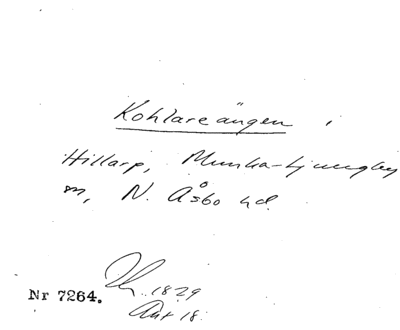 Kohlareängen
Hillarp, Munka-Ljungby
sn, N. Åsbo hd.
1829
Nr 7264.
Akt 18.